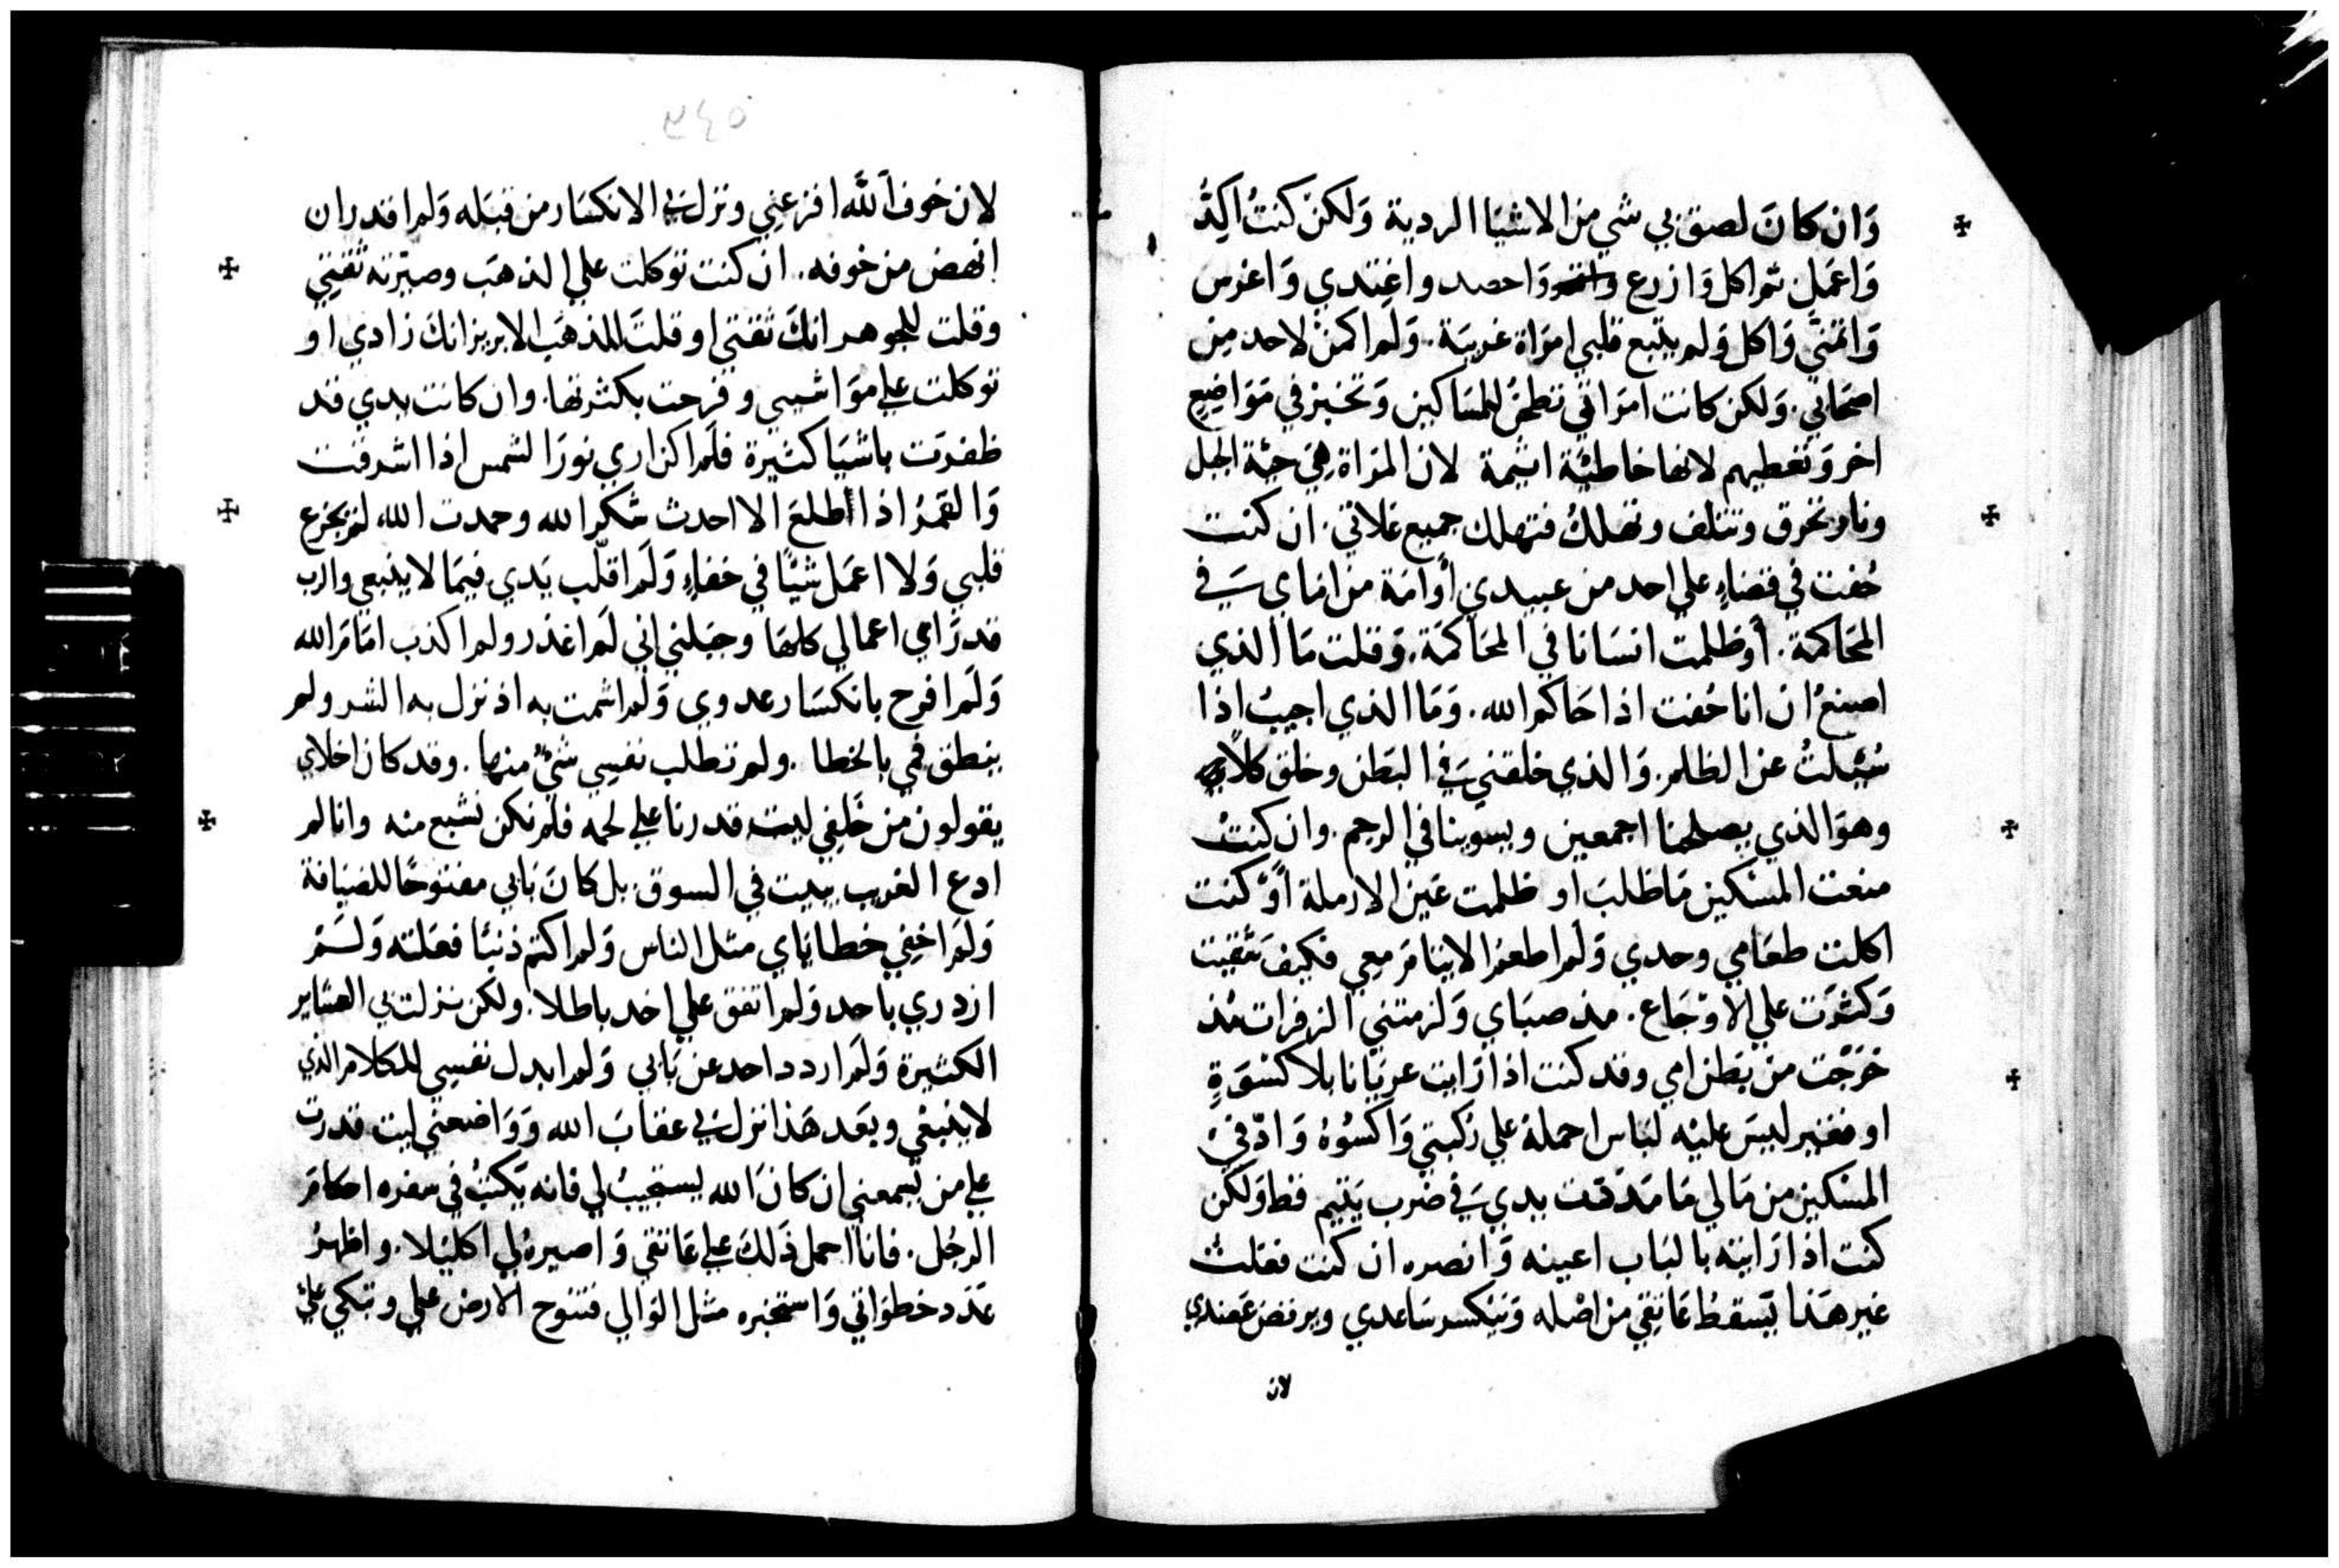 وَان كانَ لصق بي شي من الاشيَا الردية وَلكن كنتُ اكِدُّ
وَاعمَل ثم اكل وَازرع وَاحصد واغتدي وَاغرس
وَاتمنَّي وَاكل وَلم يتبع قلبي امرَاة غريبَة. وَلَم اكمنْ لاحد مِن
اصحَابي. وَلكن كانت امرَاتي تطحنُ للمسَاكين وَتخبز في مَوَاضِع
اخر وَتعطيهم لانها خاطيَّة اثيمة لان المرَاة هِيَ حيَّة الجبل
ونار تحرق وتتلف وتهلكُ فتهلك جميع غلاتي. ان كنت
حُفت في قضاءٍ علي احد من عبيدي أوامَة من امَاي في
المحَاكمة. أوظلمت انسَانا في المحَاكمَة. وَقلت مَا الذي
اصنعُ ان انا حُفت اذا حَاكم الله. وَمَا الذي اجيبُ اذا
سُيِّلتُ عن الظلم. وَالذي خلقني في البَطن وخلق كلا
وهوَ الذي يصلحنا اجمعين ويسوينا في الرحم. وان كنتُ
منعت المسْكين مَا طلبَ او ظلمت عَين الارملة أوْ كنت
اكلت طعَامي وحدي وَلَم اطعم الايتَام مَعِي فكيفَ شقيت
وَكثرَت علي الاوْجَاع. منذ صبَاي وَلزمتني الزفرات مُذ
خَرَجْت من بَطن امي وقد كنت اذا رَايت عريَانا بلا كسْوَةٍ
او فقير ليسَ عليْه لبَاس احملهُ علي رُكبتي وَاكسُوهُ وَادْفيُ
المسْكين من مَالي مَا مَدَدْت يدي في ضرب يَتيم قط وَلكن
كنت اذا رَايته بالبَاب اعينه وَانصره ان كنت فعَلت
غير هَذا يَسقطُ عَاتِقي من اصْله وَيَنكسر سَاعدي ويرفض عَضدي
لان
٣٤٥
لان خوف الله افزعني ونزل بي الانكسَار من قبَله وَلم اقدر ان
انهض من خوفه.. ان كنت توكلت علي الذهَب وصيّرته ثقتي
وقلت للجوهر انكَ ثقتي او قلتَ للذهَب الابريز انكَ زادي او
توكلت علي موَاشيي وفرحت بكثرتها. وان كانت يدي قد
ظفرَت باشيَا كثيرة فلَم اكن اري نورَ الشمس اذا اشرقت
وَالقمرُ اذا طلعَ الا احدث شكرا لله وحمدت الله لم يجزع
قلبي وَلا اعمَل شيًا في خفاءٍ وَلَم اقلّب يَدي فيمَا لا ينبغي والرب
قد رَاي اعمالي كلهَا وجبَلني اني لَم اغدر ولم اكذب امَام الله
وَلَم افرح بانكسَار عدوي وَلم اشمت به اذ نزل به الشر ولم
ينطق فمي بالخطا. ولم تطلب نفسي شيْ منها. وقد كان اخلاي
يقولون من خَلفي ليت قدرنا علي لحمه فلم نكن نشبع منه وانا لم
ادع الغريب يبيت في السوق بل كانَ بابي مفتوحًا للضيَافة
وَلَم اخفي خطايَاي مثل الناس وَلم اكتم ذنبًا فعَلته وَلَمْ
ازدري باحد وَلم اتفق علي احد باطلا. ولكن نزلت بي العشاير
الكثيرة وَلَم اردد احد عن بَابي وَلم ابدل نفسي للكلام الذي
لا ينبغي وبعَد هَذا نزل بي عقابَ الله وَوَاضعني ليت قدرت
علي من يَسمعني ان كانَ الله يستجيبُ لي فانه يَكتبُ في سفره احكام
الرجُل. فانا احمل ذَلكَ علي عَاتقي وَاصيرهُ لي اكليْلا. واظهرُ
عَدَد خطوَاتي وَاستخبره مثل الوَالي فتنوح الارض علي وتبكي عليَّ